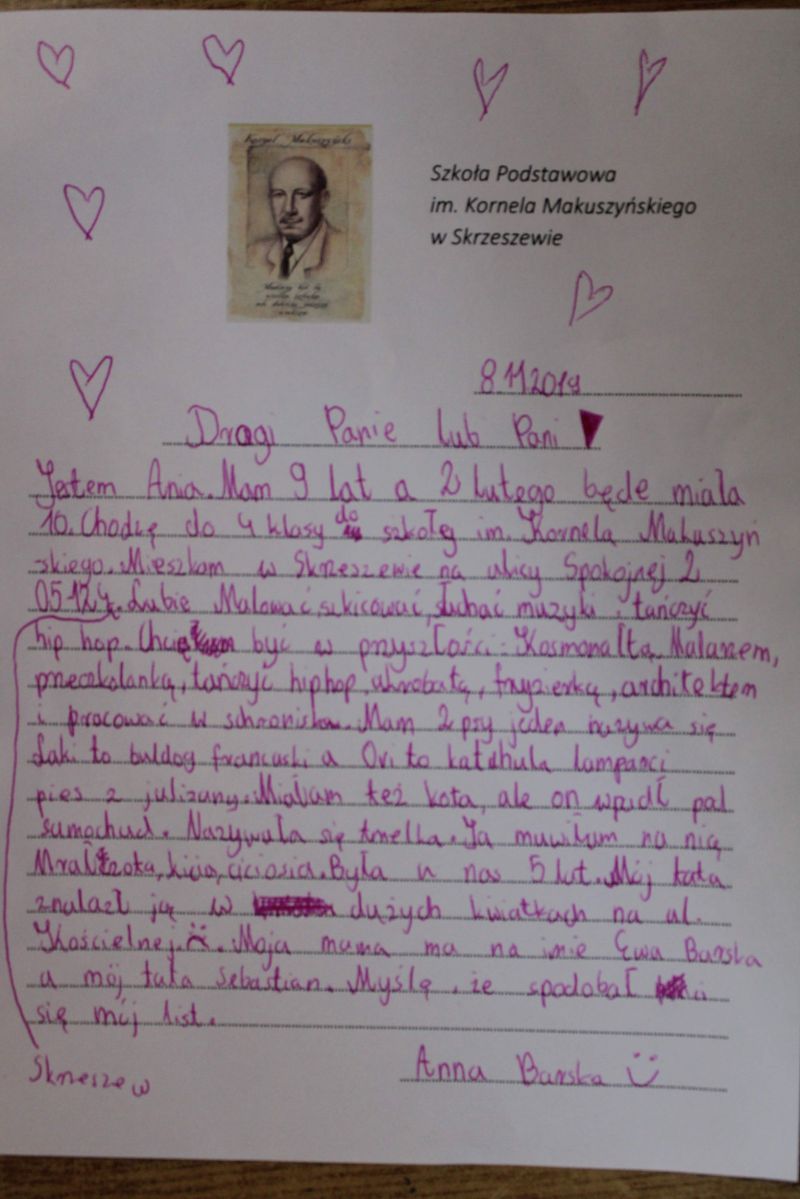 Kornel Makuszyński
Szkoła Podstawowa
im. Kornela Makuszyńskiego
w Skrzeszewie
8 11 2019
Dragi Panie lub Pani
Jestem Ania. Mam 9 lat a 2 lutego będe miala
10. Chodzę do 4 klasy do szkołę im. Kornela Makuszyń
skiego. Mieszkam w Skrzeszewie na ulicy Spokojnej 2
05 124. Lubie Malować, szkicować, słuchać muzyki i tańczyć
hip hop. Chcę być w przyszłości: Kosmonałtą, Malarzem,
przeczkolanką, tańczyć hip hop, akrobatą, fryzierką, architektem
i pracować w schronisku. Mam 2 psy jeden nazywa się
Laki to buldog francuski a Ori to katahula lamparci
pies z julizany. Miałam też kota, ale on wpadł pod
samochud. Nazywała się Amelka. Ja muwiłam na nią
kicia, ciciosia. Była u nas 5 lat. Mój tata
znalazł ją w dużych kwiatkach na ul.
Kościelnej. Moja mama ma na imie Ewa Barska
a mój tata Sebastian. Myślę, że spodobał ci
się mój list.
Skrzeszew
Anna Barska